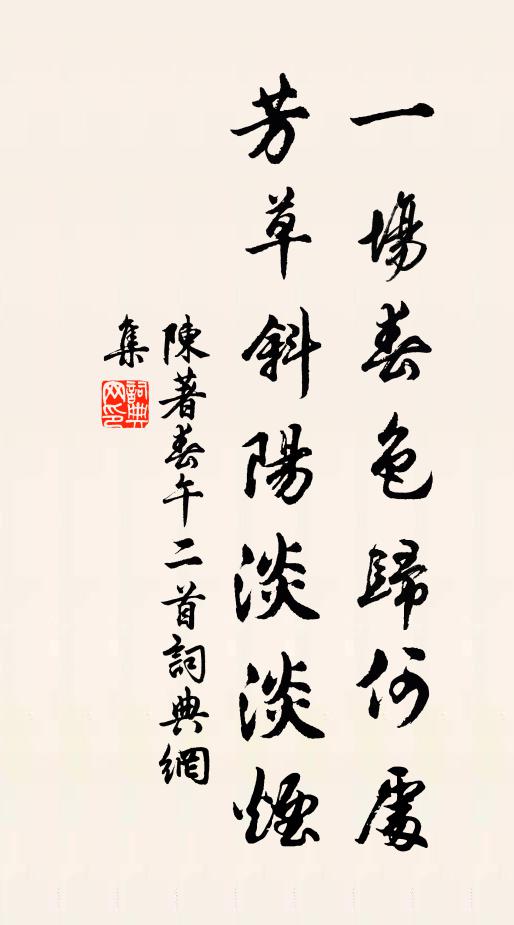 一場春色歸何處
芳草斜陽淡淡煙
陳著春午二首詞典網
集
詞典
网印